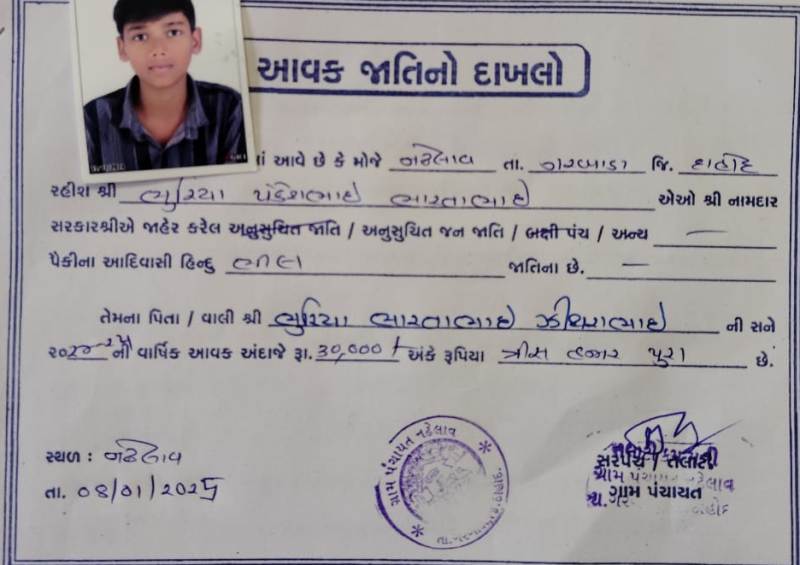 આવક જાતિનો દાખલો
માં આવે છે કે મોજે નઢેલાવ તા. ગરબાડા જિ. દાહોદ
રહીશ શ્રી ભુરિયા પંકેશભાઇ ભારતાભાઇ એઓ શ્રી નામદાર
સરકારશ્રીએ જાહેર કરેલ અનુસુચિત જાતિ / અનુસુચિત જન જાતિ / બક્ષી પંચ / અન્ય —
પૈકીના આદિવાસી હિન્દુ ભીલ જાતિના છે. —
તેમના પિતા / વાલી શ્રી ભુરિયા ભારતાભાઇ ની સને
વાર્ષિક આવક અંદાજે રૂા. 30,000/ અંકે રૂપિયા ત્રીસ હજાર પુરા છે.
સ્થળ : નઢેલાવ
તા. 08/01/2025
ગ્રામ પંચાયત નઢેલાવ
સરપંચ / તલાટી
ગ્રામ પંચાયત